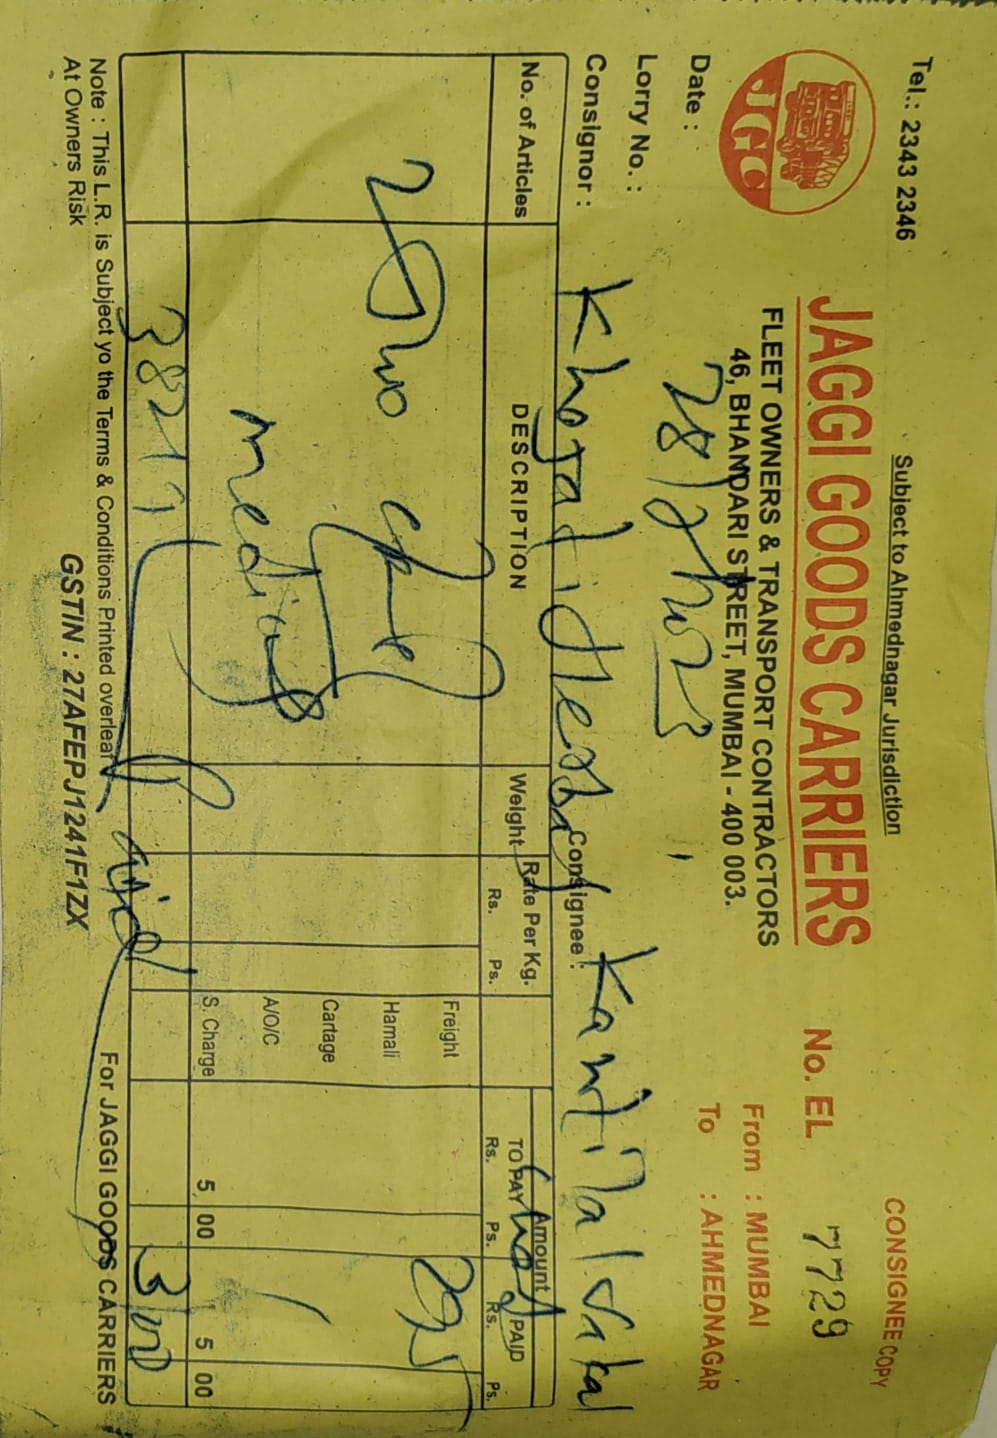 Tel.: 2343 2346
Subject to Ahmednagar Jurisdiction
CONSIGNEE COPY
JGC
JAGGI GOODS CARRIERS
No. EL 7729
FLEET OWNERS & TRANSPORT CONTRACTORS
46, BHANDARI STREET, MUMBAI - 400 003.
From : MUMBAI
To : AHMEDNAGAR
Date : 28/2/2023
Lorry No. :
Consignor :
Consignee : Kantilal
No. of Articles
DESCRIPTION
Weight
Rate Per Kg.
Rs. Ps.
Amount
TO PAY
Rs. Ps.
PAID
Rs. Ps.
2 Two
Freight 295
Hamali
Cartage
A/O/C
S. Charge 5 00 5 00
38217
300
Note : This L.R. is Subject yo the Terms & Conditions Printed overleaf
At Owners Risk
GSTIN : 27AFEPJ1241F1ZX
For JAGGI GOODS CARRIERS